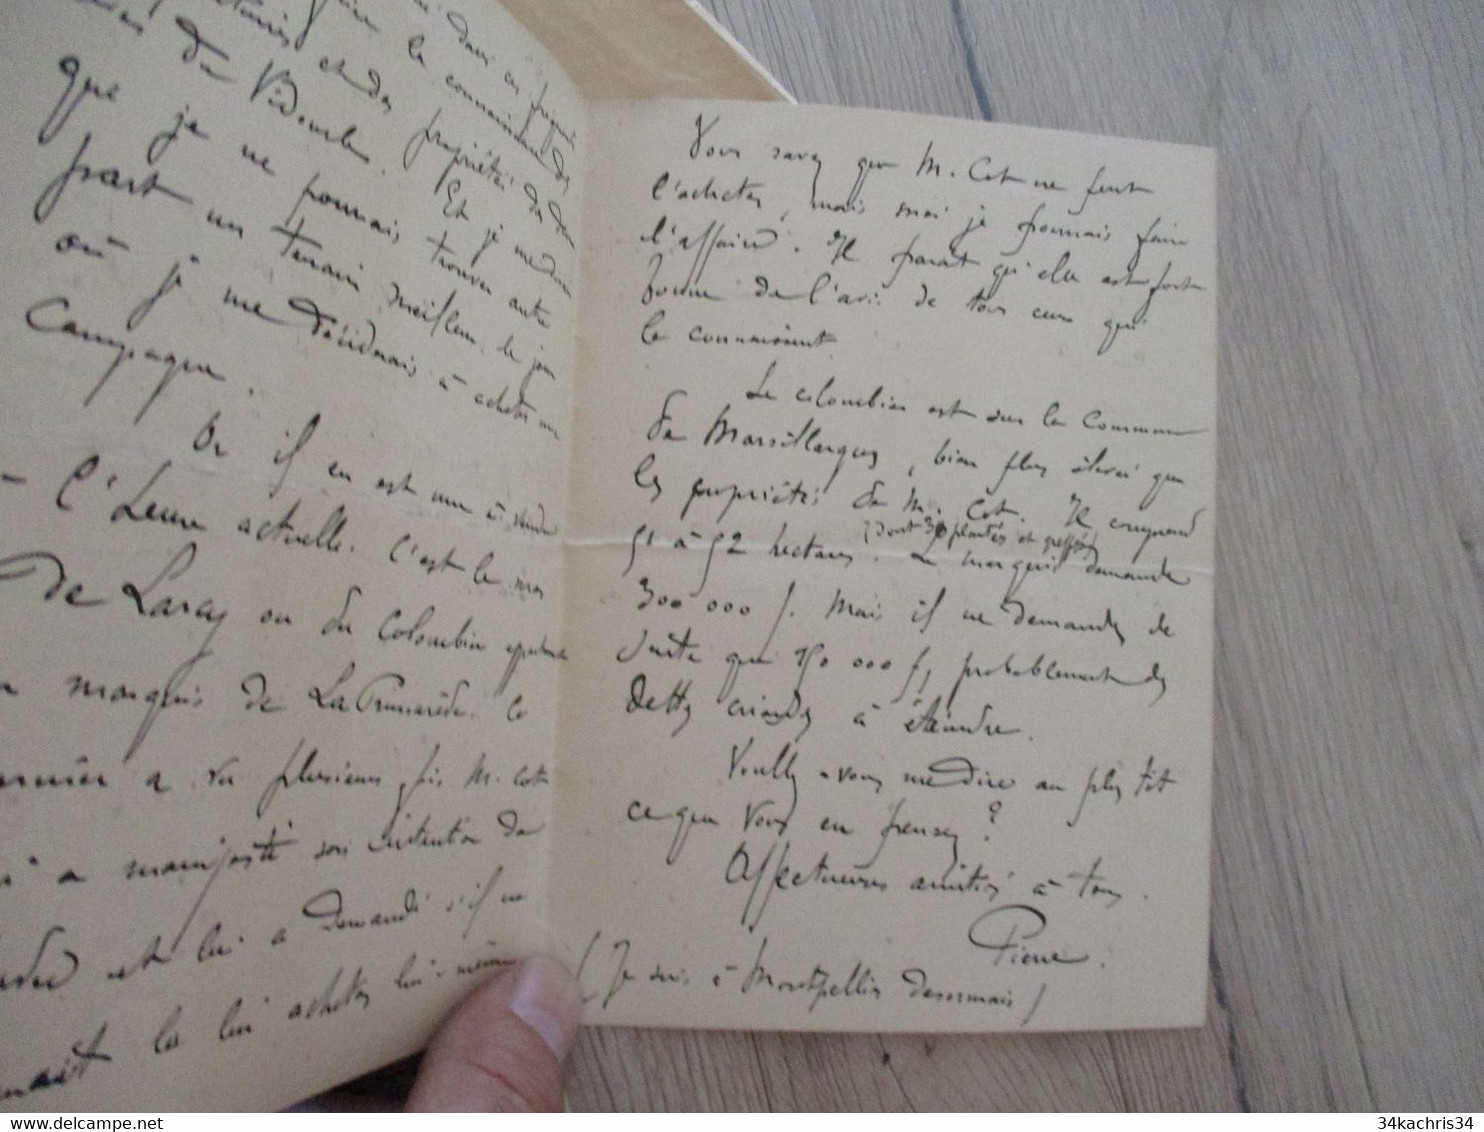 dans ces
faire la connaissance des
et des propriétés des
du Vidourle. Et je me
que je ne pourrais trouver autre
part un terrain meilleur, le jour
où je me déciderais à acheter une
Campagne.
Or il en est une à vendre
à l'heure actuelle. C'est le mas
de Larcy ou du Colombier
marquis de LaPrunarède. Ce
dernier a vu plusieurs fois M. Cot
a manifesté son intention de
et lui a demandé s'il ne
la lui acheter lui-même
Vous savez que M. Cot ne peut
l'acheter, mais moi je pourrais faire
l'affaire. Il parait qu'elle est fort
bonne de l'avis de tous ceux qui
la connaissent.
Le colombier est sur la Commune
de Marsillargues, bien plus élevé que
les propriétés de M. Cot. Il comprend
(dont 30 plantés et greffés)
51 à 52 hectares. Le marquis demande
300 000 f. Mais il ne demande de
suite que 150 000 f, probablement des
dettes criardes à éteindre.
Voulez-vous me dire au plus tôt
ce que vous en pensez ?
Affectueuses amitiés à tous.
Pierre.
(Je suis à Montpellier desormais)
34kachris34